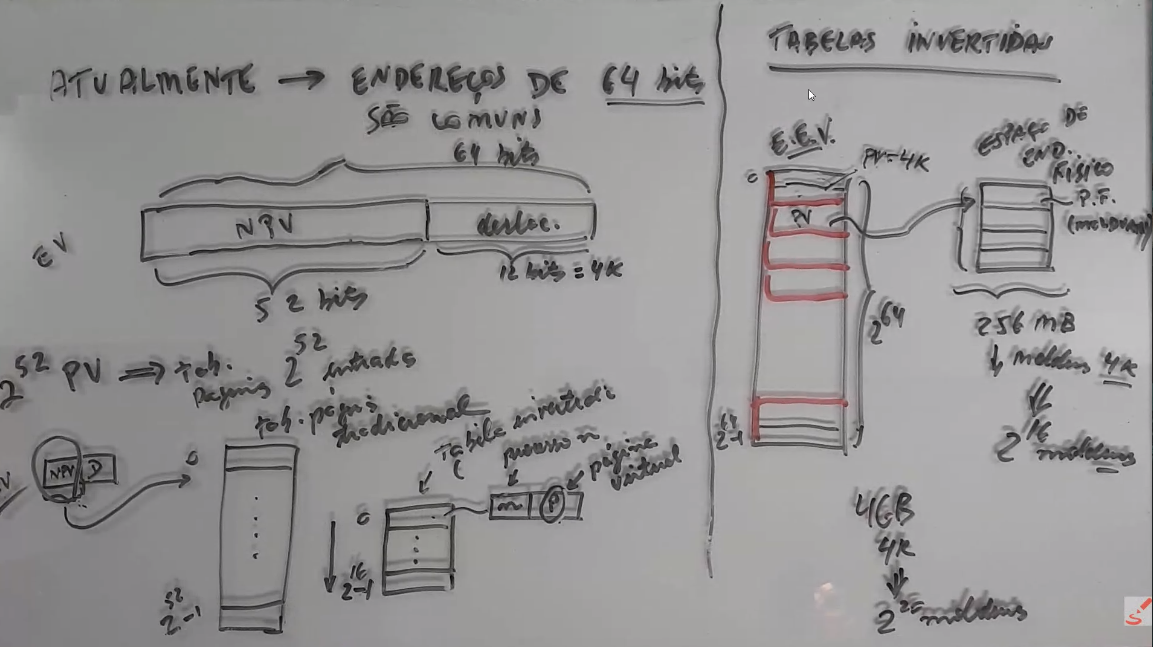 ATUALMENTE → ENDEREÇOS DE 64 bits
SÃO COMUNS
64 bits
EV
NPV
desloc.
12 bits = 4K
52 bits
2^52 PV ⇒ tab. páginas 2^52 entradas
tab. págs tradicional
NPV D
0
2^52-1
Tabela invertida
processo n
página virtual
0
n P
2^16-1
TABELAS INVERTIDAS
E.E.V.
PV=4K
0
PV
2^64
2^64-1
ESPAÇO DE
END.
FÍSICO
P.F.
(moldura)
256 MB
↓ molduras 4K
⇓
2^16 molduras
4GB
4K
⇓
molduras